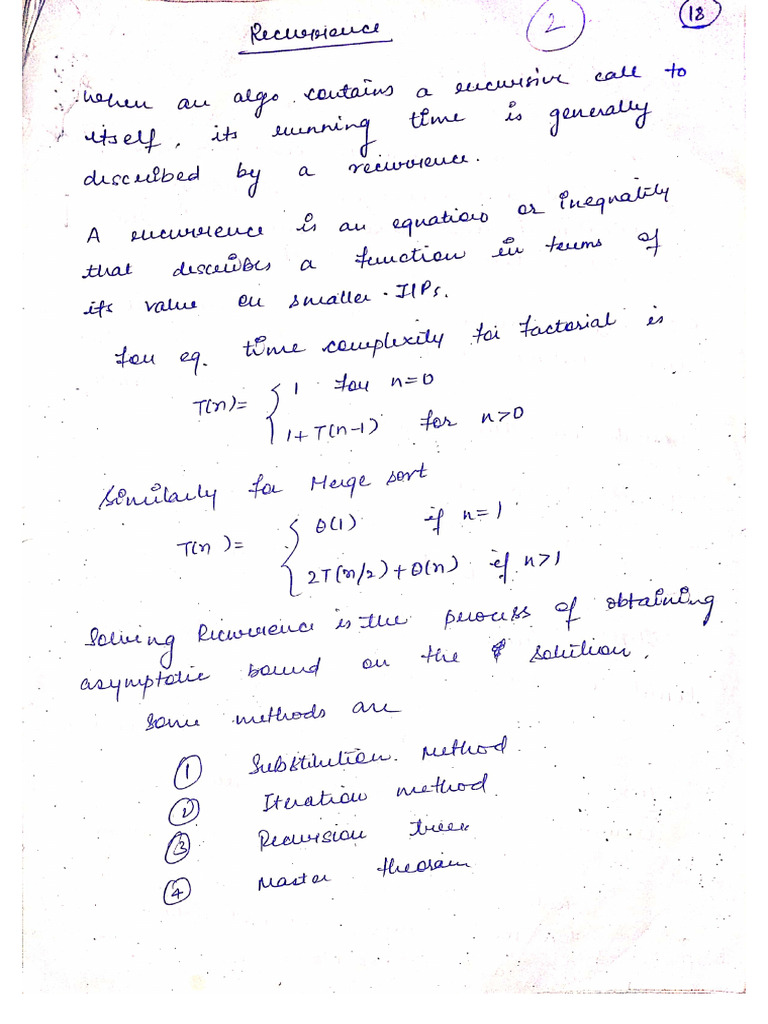 Recurrence
2
18
When an algo. contains a recursive call to
itself, its running time is generally
described by a recurrence.
A recurrence is an equation or inequality
that describes a function in terms of
its value on smaller I/Ps.
for eg. time complexity for factorial is
T(n)= { 1 for n=0
1+T(n-1) for n>0
Similarly for Merge sort
T(n)= { θ(1) if n=1
2T(n/2)+θ(n) if n>1
Solving Recurrence is the process of obtaining
asymptotic bound on the solution.
Some methods are
① Substitution Method.
② Iteration method.
③ Recursion tree
④ Master theoram